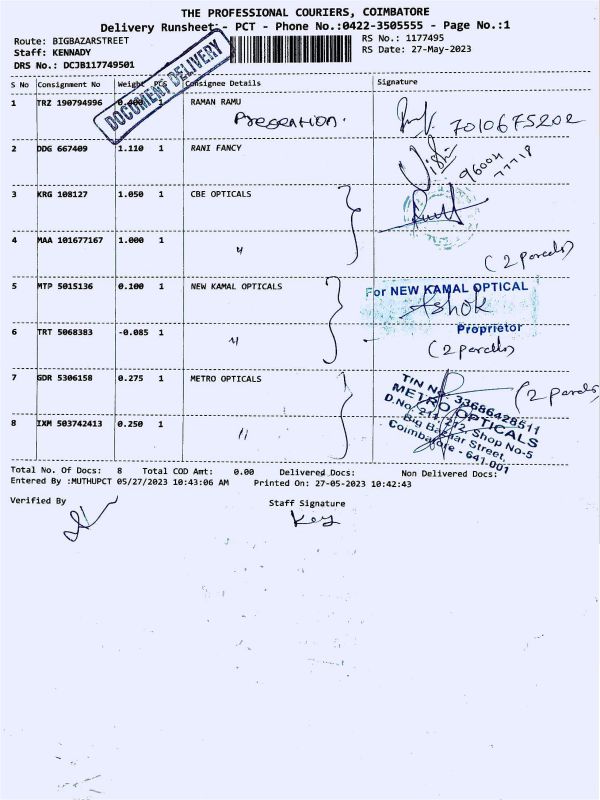 THE PROFESSIONAL COURIERS, COIMBATORE
Delivery Runsheet - PCT - Phone No.:0422-3505555 - Page No.:1
Route: BIGBAZARSTREET RS No.: 1177495
Staff: KENNADY RS Date: 27-May-2023
DRS No.: DCJB117749501
DOCUMENT DELIVERY
S No Consignment No Weight PCS Consignee Details Signature
1 TRZ 190794996 0.400 1 RAMAN RAMU
7010675202
2 DDG 667409 1.110 1 RANI FANCY
96004
77718
3 KRG 108127 1.050 1 CBE OPTICALS
4 MAA 101677167 1.000 1 〃
(2 parcels)
5 MTP 5015136 0.100 1 NEW KAMAL OPTICALS
For NEW KAMAL OPTICAL
Ashok
Proprietor
6 TRT 5068383 -0.085 1 〃 (2 parcels)
7 GDR 5306158 0.275 1 METRO OPTICALS (2 parcels)
TIN No. 33686428611
METRO OPTICALS
D.No. 211, 212, Shop No-5
Big Bazaar Street,
Coimbatore - 641-001
8 IXM 503742413 0.250 1 〃
Total No. Of Docs: 8 Total COD Amt: 0.00 Delivered Docs: Non Delivered Docs:
Entered By :MUTHUPCT 05/27/2023 10:43:06 AM Printed On: 27-05-2023 10:42:43
Verified By Staff Signature
Key